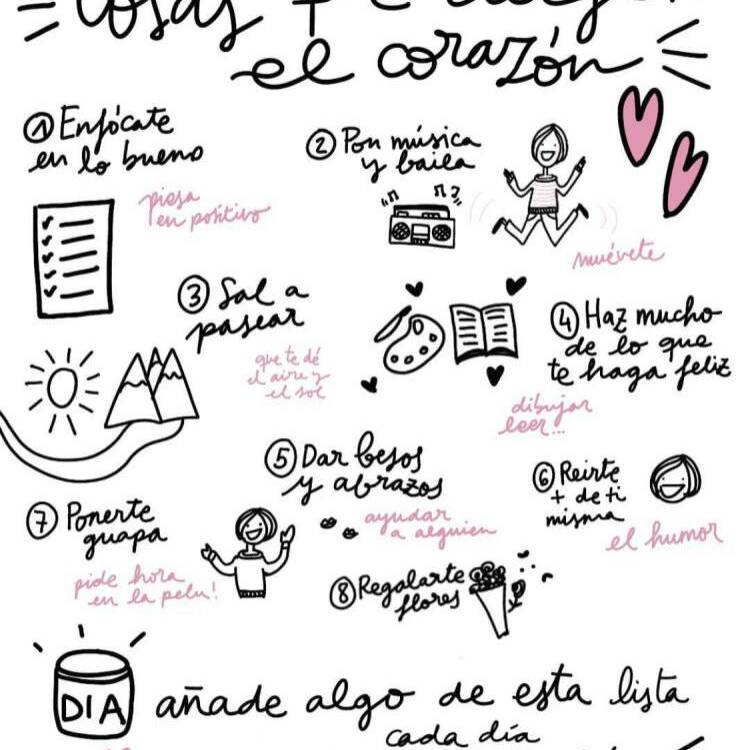 cosas
el corazón
① Enfócate
en lo bueno
piesa
en positivo
② Pon música
y baila
muévete
③ Sal a
pasear
que te dé
el aire y
el sol
④ Haz mucho
de lo que
te haga feliz
dibujar
leer...
⑤ Dar besos
y abrazos
ayudar
a alguien
⑥ Reirte
+ de ti
misma
el humor
⑦ Ponerte
guapa
pide hora
en la pelu!
⑧ Regalarte
flores
DIA
añade algo de esta lista
cada día